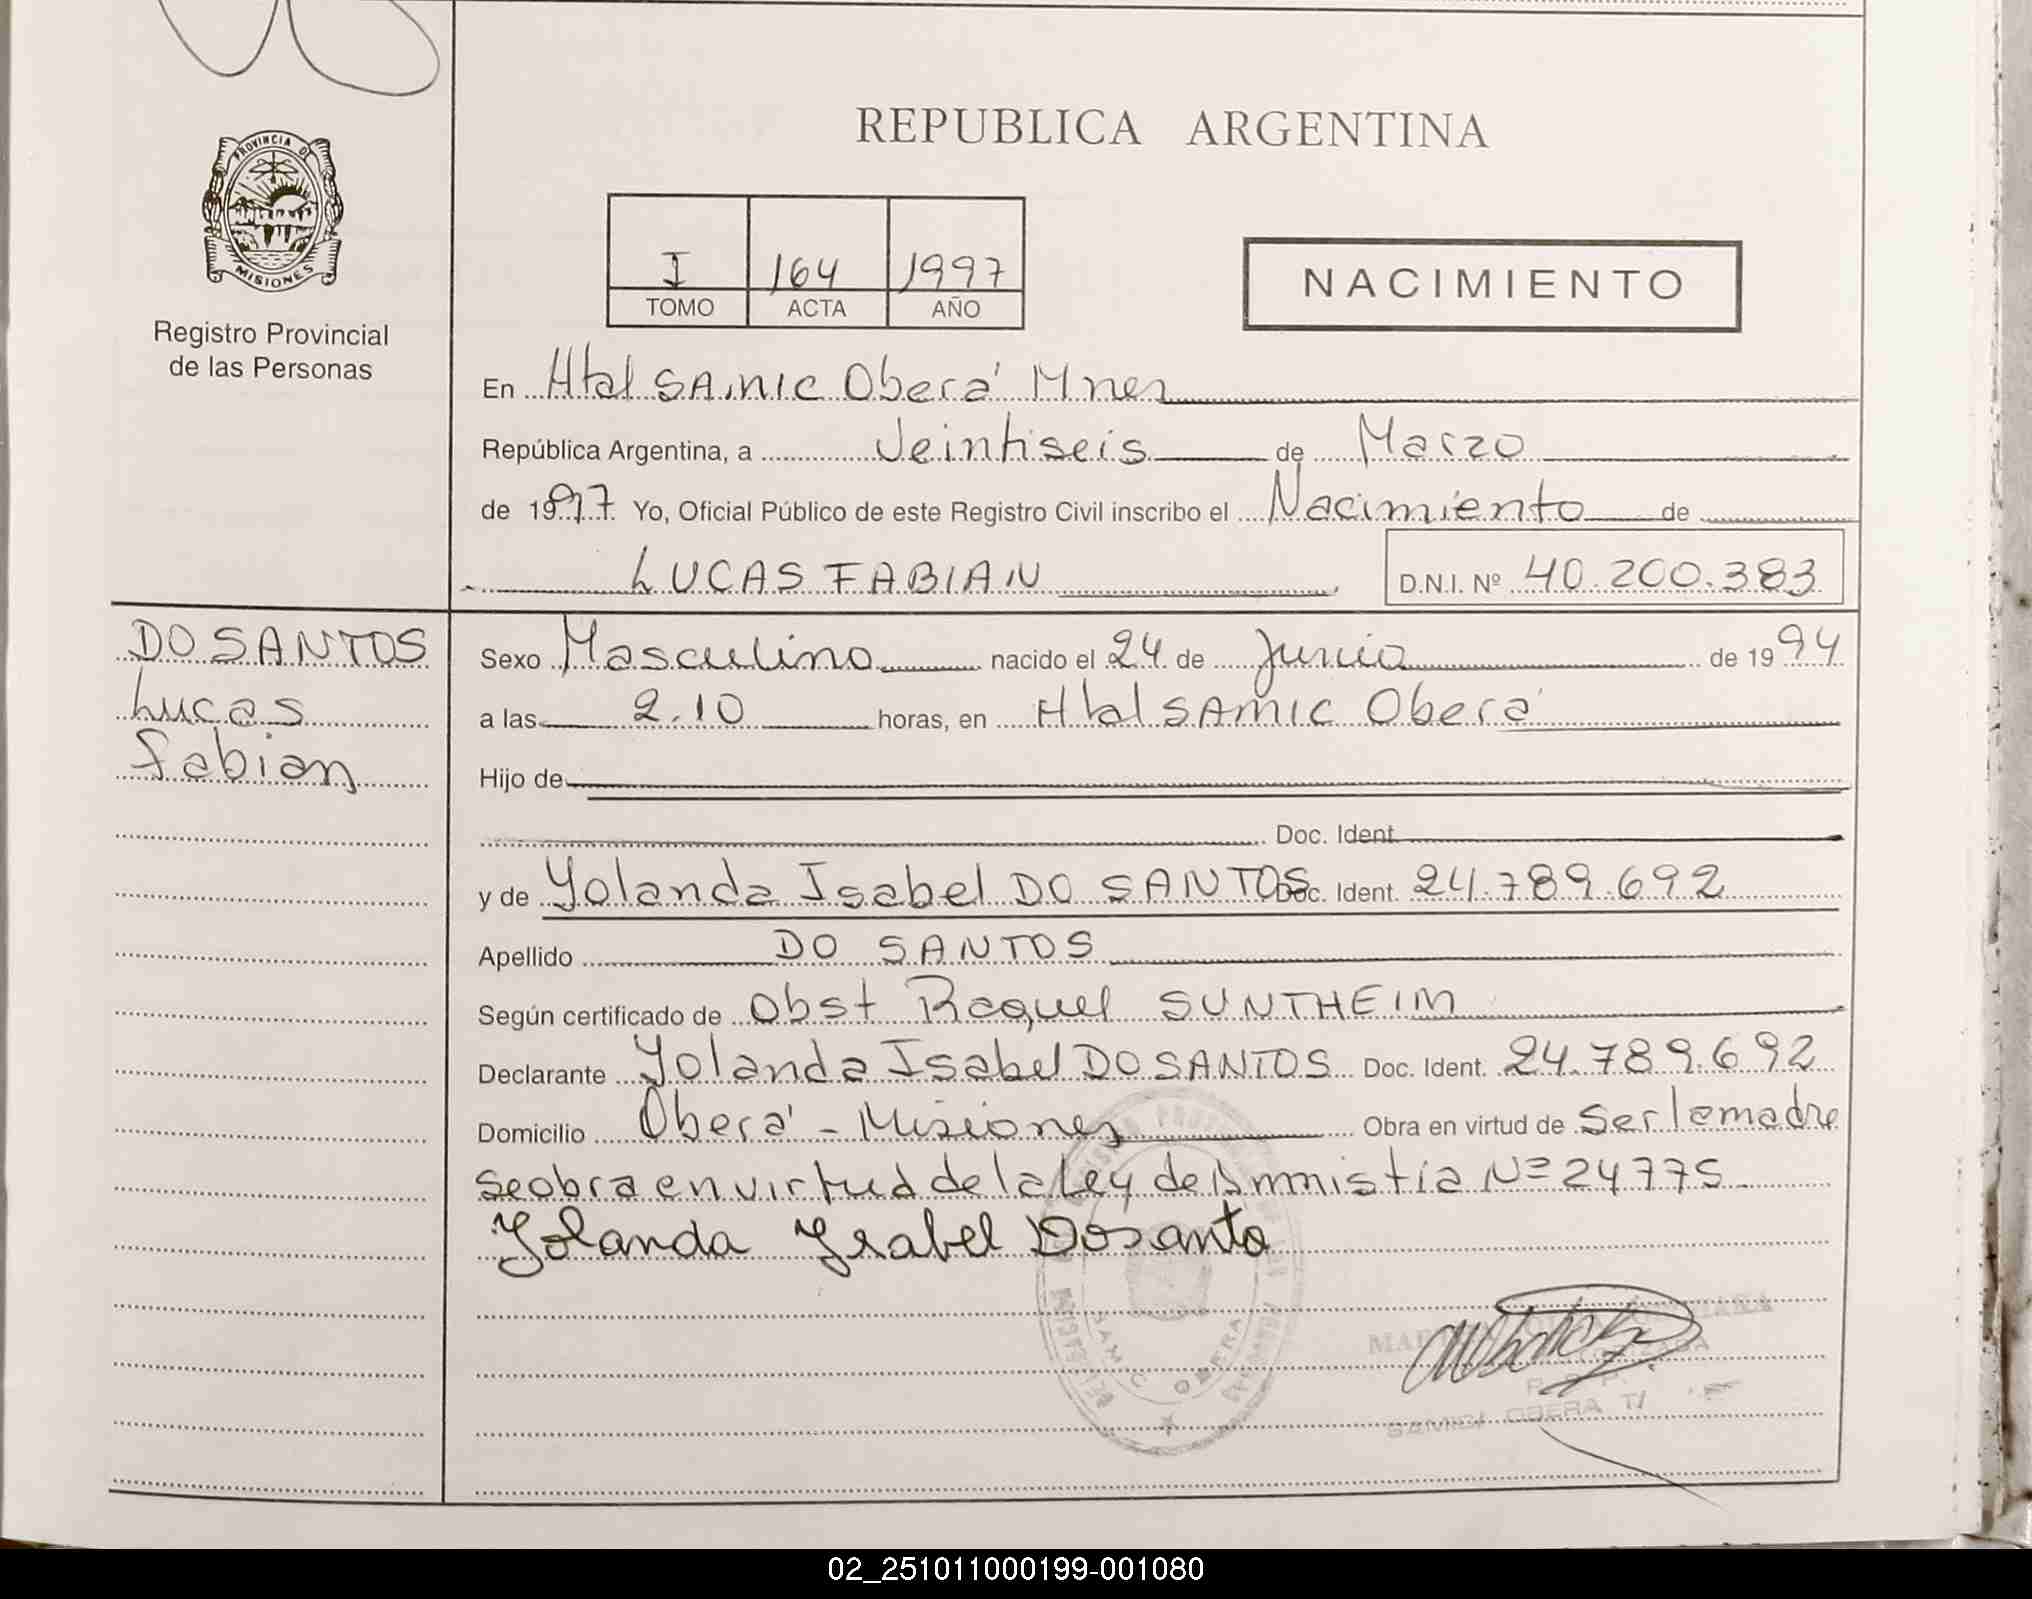 REPUBLICA ARGENTINA
PROVINCIA DE
MISIONES
Registro Provincial
de las Personas
I 164 1997
TOMO ACTA AÑO
NACIMIENTO
En Htal SAMIC Oberá Mnes
República Argentina, a Veintiseis de Marzo
de 1997 Yo, Oficial Público de este Registro Civil inscribo el Nacimiento de
LUCAS FABIAN D.N.I. Nº 40.200.383
DO SANTOS
Lucas
Fabian
Sexo Masculino nacido el 24 de Junio de 1994
a las 2.10 horas, en Htal SAMIC Oberá
Hijo de
Doc. Ident.
y de Yolanda Isabel DO SANTOS Doc. Ident. 24.789.692
Apellido DO SANTOS
Según certificado de Obst Raquel SUNTHEIM
Declarante Yolanda Isabel DO SANTOS Doc. Ident. 24.789.692
Domicilio Oberá - Misiones Obra en virtud de Ser la madre
se obra en virtud de la Ley de Amnistia Nº 24775
Yolanda Ysabel Dosanto
SAMIC OBERA
SAMIC OBERA
02_251011000199-001080